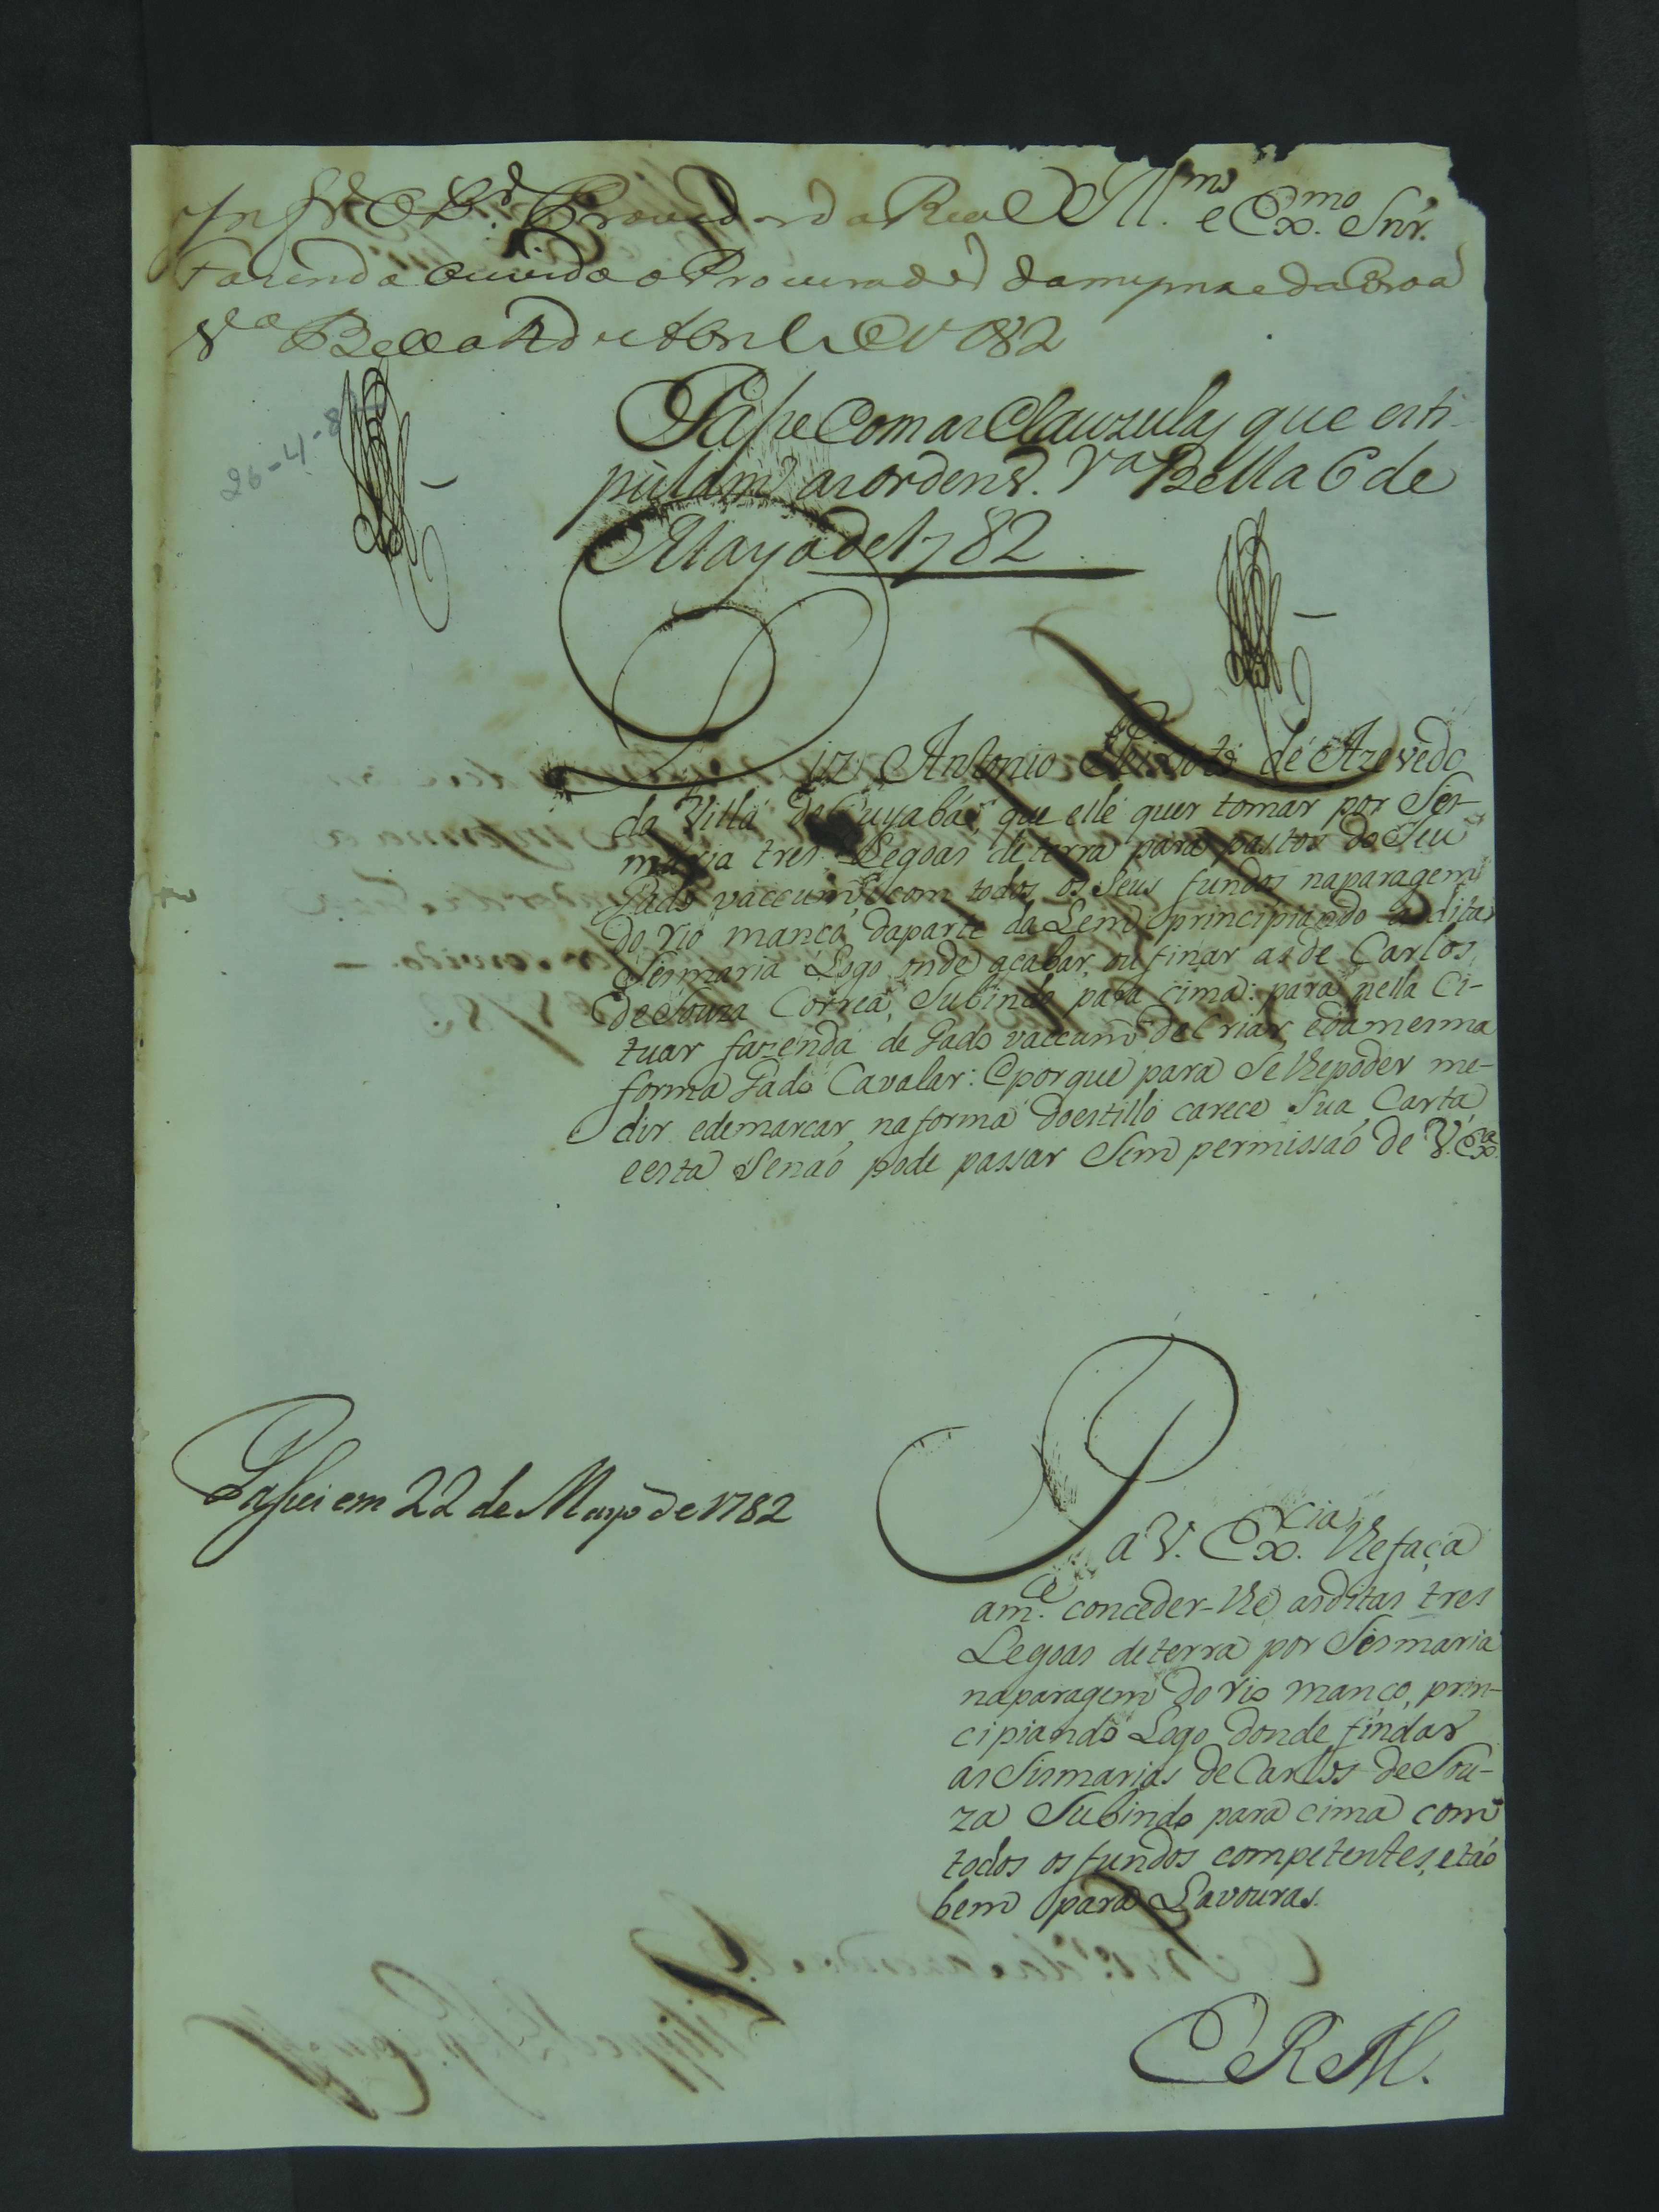 Infr.e o D.r Provedor da Real Ill.mo e Ex.mo Snr.
Fazenda ouvido o Procurador da mesma e da Coroa
V.a Bella de Abril de 1782
26-4-8
Passe Com as Clauzulas que esti-
pulam as ordens. V.a Bella 6 de
Mayo de 1782
Diz Antonio Peixoto de Azevedo
da Villa do Cuyabá, que elle quer tomar por Ses-
maria tres Legoas de terra para pastos do Seu
Gado vaccum, com todos os Seus fundos naparagem
do rio manco daparte da Lem principiando a dita
Sesmaria Logo onde acabar, ou finar as de Carlos
de Souza Correa, Subindo para cima: para nella Ci-
tuar fazenda de Gado vaccum de Criar, edamesma
forma Gado Cavalar: Eporque para Se lhepoder me-
dir edemarcar, na forma doestillo carece Sua Carta,
eesta Senaó pode passar Sem permissaó de V. Ex.a
Passei em 22 de Mayo de 1782
P. a V. Ex.cia lhefaça
a m.ce conceder-lhe asditas tres
Legoas deterra por Sesmaria
naparagem do rio manco, prin-
cipiando Logo donde findar
as Sismarias de Carlos de Sou-
za Subindo para cima com
todos os fundos competentes, etaó
bem para Lavouras.
E R M.